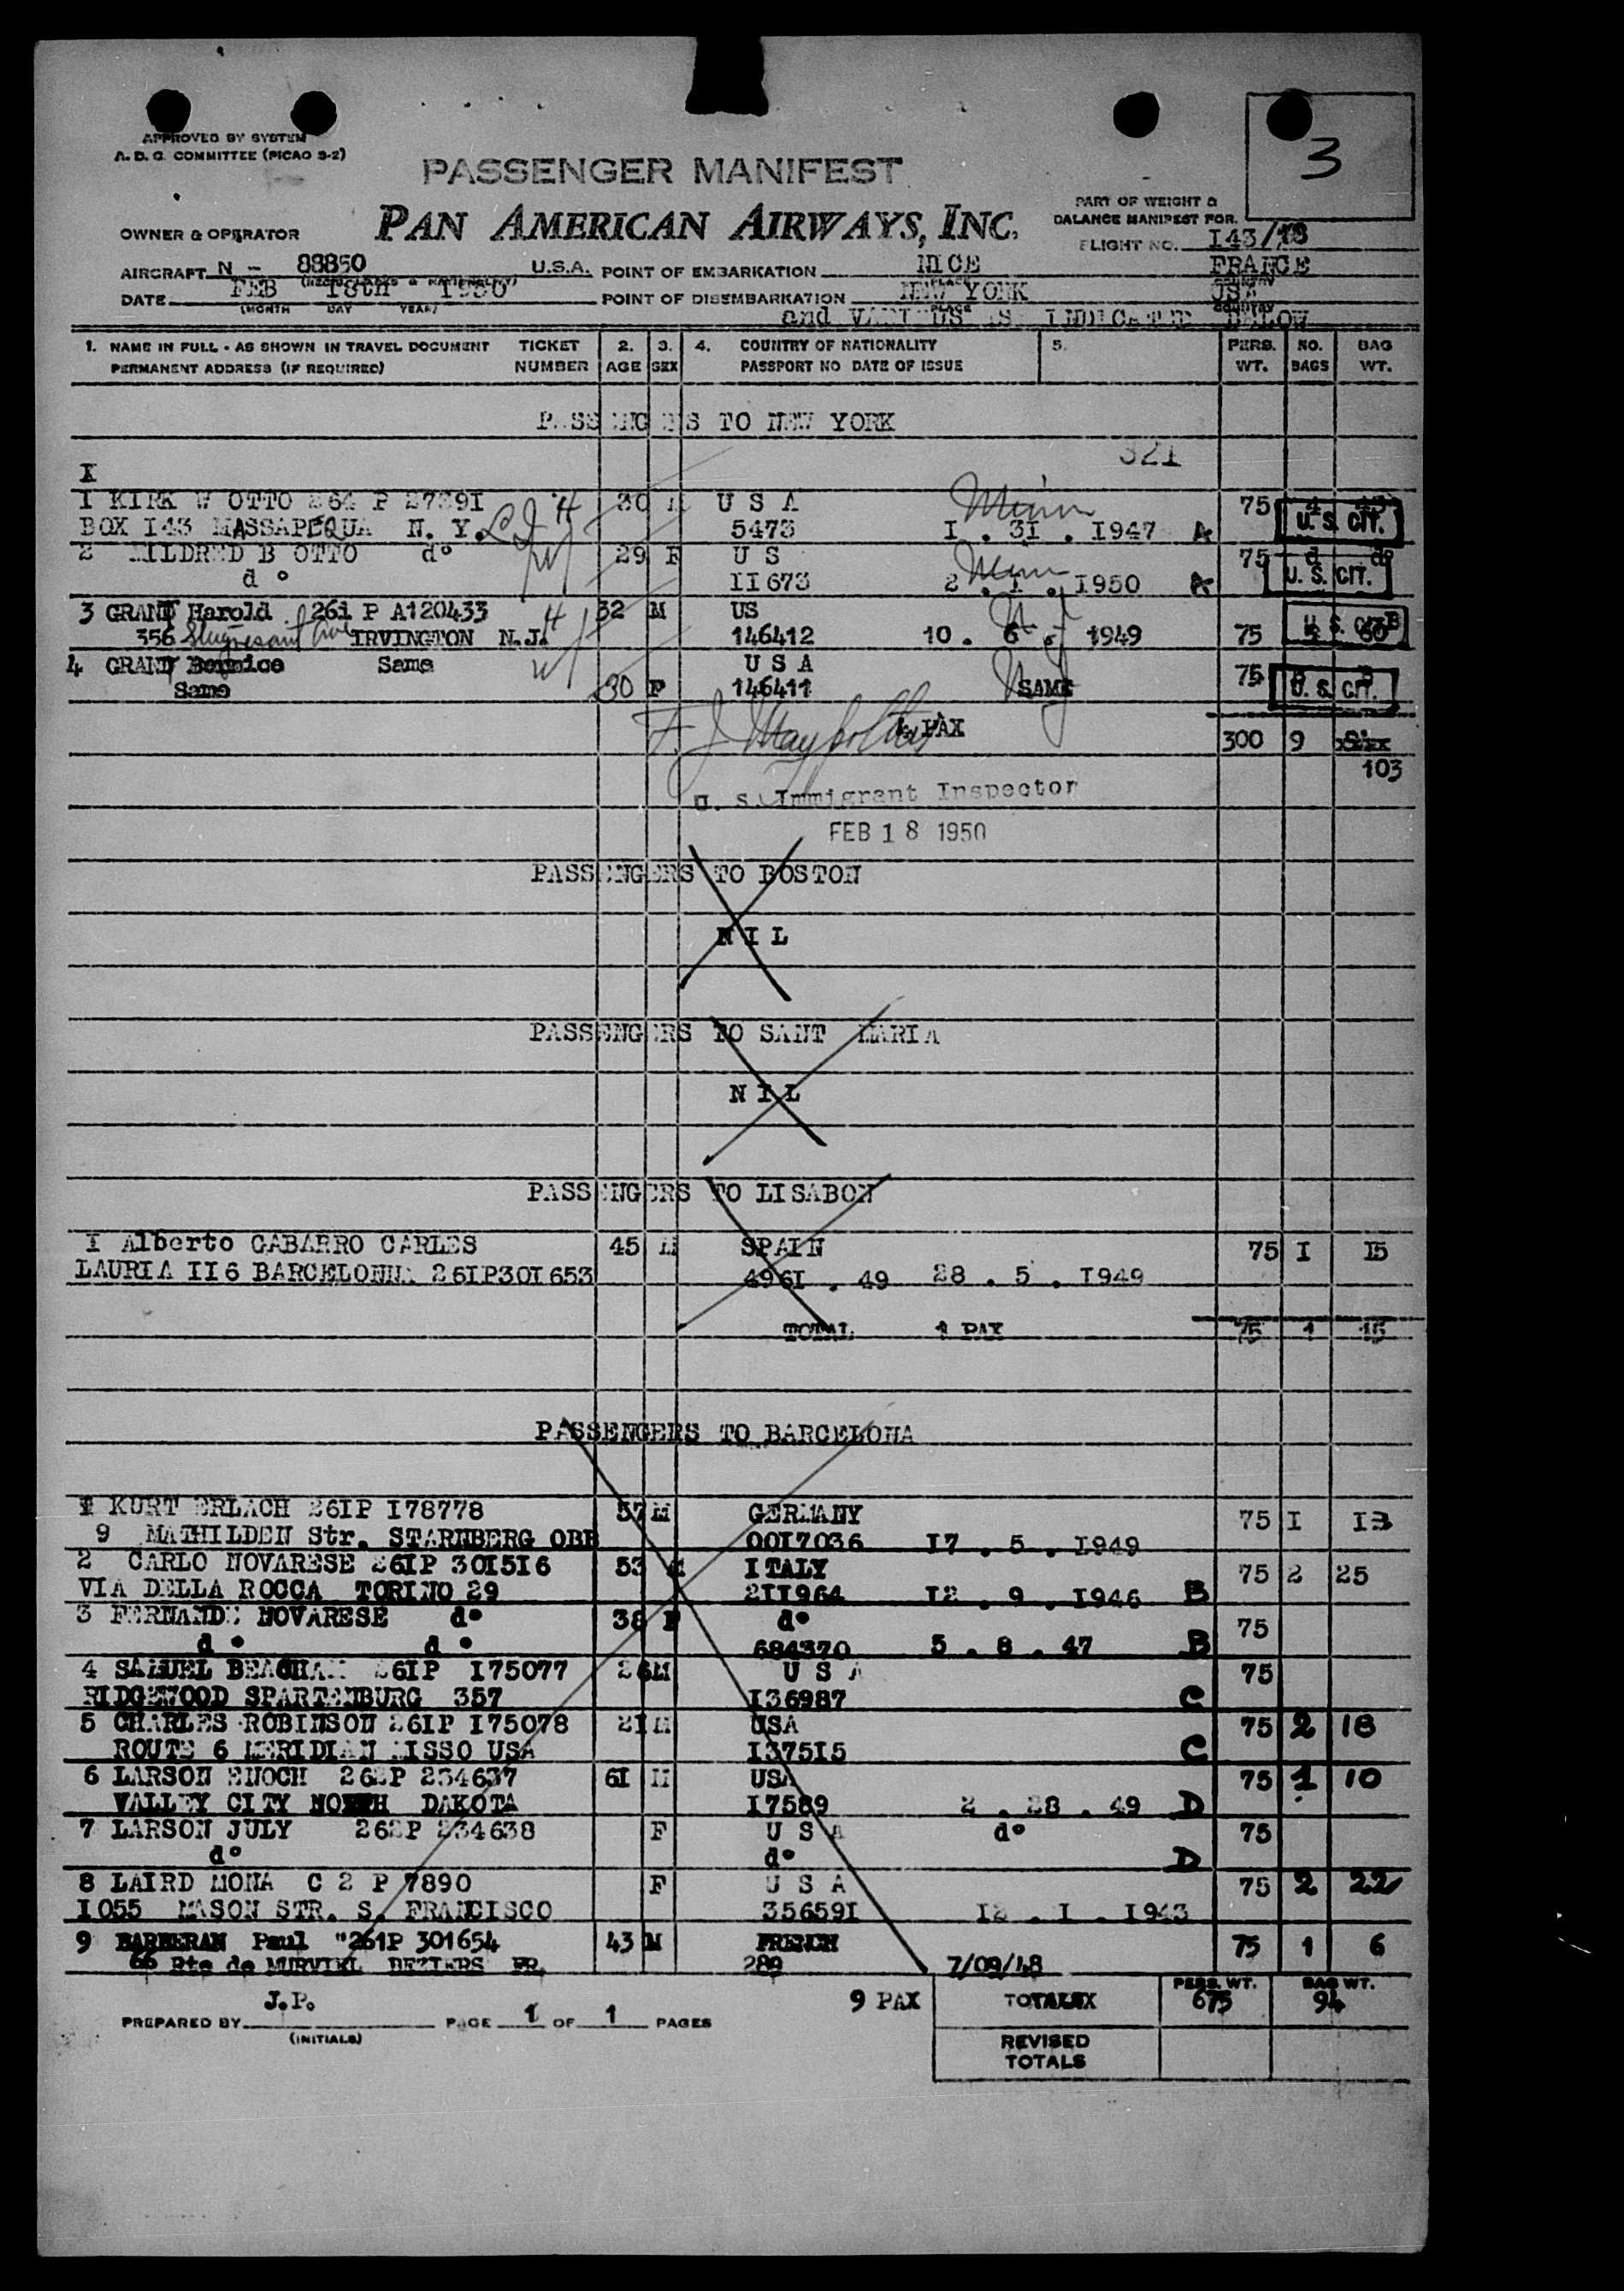 APPROVED BY SYSTEM
A. D. G. COMMITTEE (PICAO 9-2)
3
PASSENGER MANIFEST
PAN AMERICAN AIRWAYS, INC.
PART OF WEIGHT &
BALANCE MANIFEST FOR
OWNER & OPERATOR
FLIGHT NO. I43/18
AIRCRAFT N - 88850 U.S.A. POINT OF EMBARKATION NICE FRANCE
DATE FEB 18th 1950 POINT OF DISEMBARKATION NEW YORK USA
(MONTH DAY YEAR)
and VARIOUS AS INDICATED BELOW
1. NAME IN FULL - AS SHOWN IN TRAVEL DOCUMENT TICKET 2. 3. 4. COUNTRY OF NATIONALITY 5. PERS. NO. BAG
PERMANENT ADDRESS (IF REQUIRED) NUMBER AGE SEX PASSPORT NO DATE OF ISSUE WT. BAGS WT.
PASSENGERS TO NEW YORK
321
I
I KIRK W OTTO 264 P 27391 30 M U S A 75 4 43
BOX I43 MASSAPEQUA N. Y. 5473 I . 3I . I947 A U. S. CIT.
2 MILDRED B OTTO do 29 F U S 75 do
d o II673 2 . I . I950 A U. S. CIT.
3 GRANT Harold 261 P A120433 32 M US U. S. CIT. B
356 IRVINGTON N.J. 146412 10 . 6 . 1949 75 5 60
4 GRANT Bernice Same U S A 75
Same 30 F 146411 SAME U. S. CIT.
4 PAX
300 9
103
U. S. Immigrant Inspector
FEB 18 1950
PASSENGERS TO BOSTON
N I L
PASSENGERS TO SANTA MARIA
N I L
PASSENGERS TO LISABON
I Alberto GABARRO CARLES 45 M SPAIN 75 I I5
LAURIA II6 BARCELONNA 26IP30I653 496I . 49 28 . 5 . I949
TOTAL 1 PAX 75 1 15
PASSENGERS TO BARCELONA
I KURT ERLACH 26IP I78778 57 M GERMANY 75 I I3
9 MATHILDEN Str. STARNBERG OBB 00I7036 I7 . 5 . I949
2 CARLO NOVARESE 26IP 30I5I6 53 M ITALY 75 2 25
VIA DELLA ROCCA TORINO 29 2II964 I2 . 9 . I946 B
3 FERNANDE NOVARESE do 38 F do 75
d o d o 684370 5 . 8 . 47 B
4 SAMUEL BEACHAM 26IP I75077 26 M U S A 75
RIDGEWOOD SPARTENBURG 357 I36987 C
5 CHARLES ROBINSON 26IP I75078 2I M USA 75 2 18
ROUTE 6 MERIDIAN MISSO USA I375I5 C
6 LARSON ENOCH 262P 234637 6I M USA 75 1 10
VALLEY CITY NORTH DAKOTA I7589 2 . 28 . 49 D
7 LARSON JULY 262P 234638 F U S A do 75
do do D
8 LAIRD MONA C 2 P 7890 F U S A 75 2 22
I055 MASON STR. S. FRANCISCO 35659I I2 . I . I943
9 BARBERAN Paul "261P 301654 43 M FRENCH 75 1 6
66 Rte de MURVIEL BEZIERS FR. 289 7/09/48
PERS. WT. BAG WT.
J.P. 9 PAX TOTALSX 675 94
PREPARED BY PAGE 1 OF 1 PAGES
(INITIALS)
REVISED
TOTALS